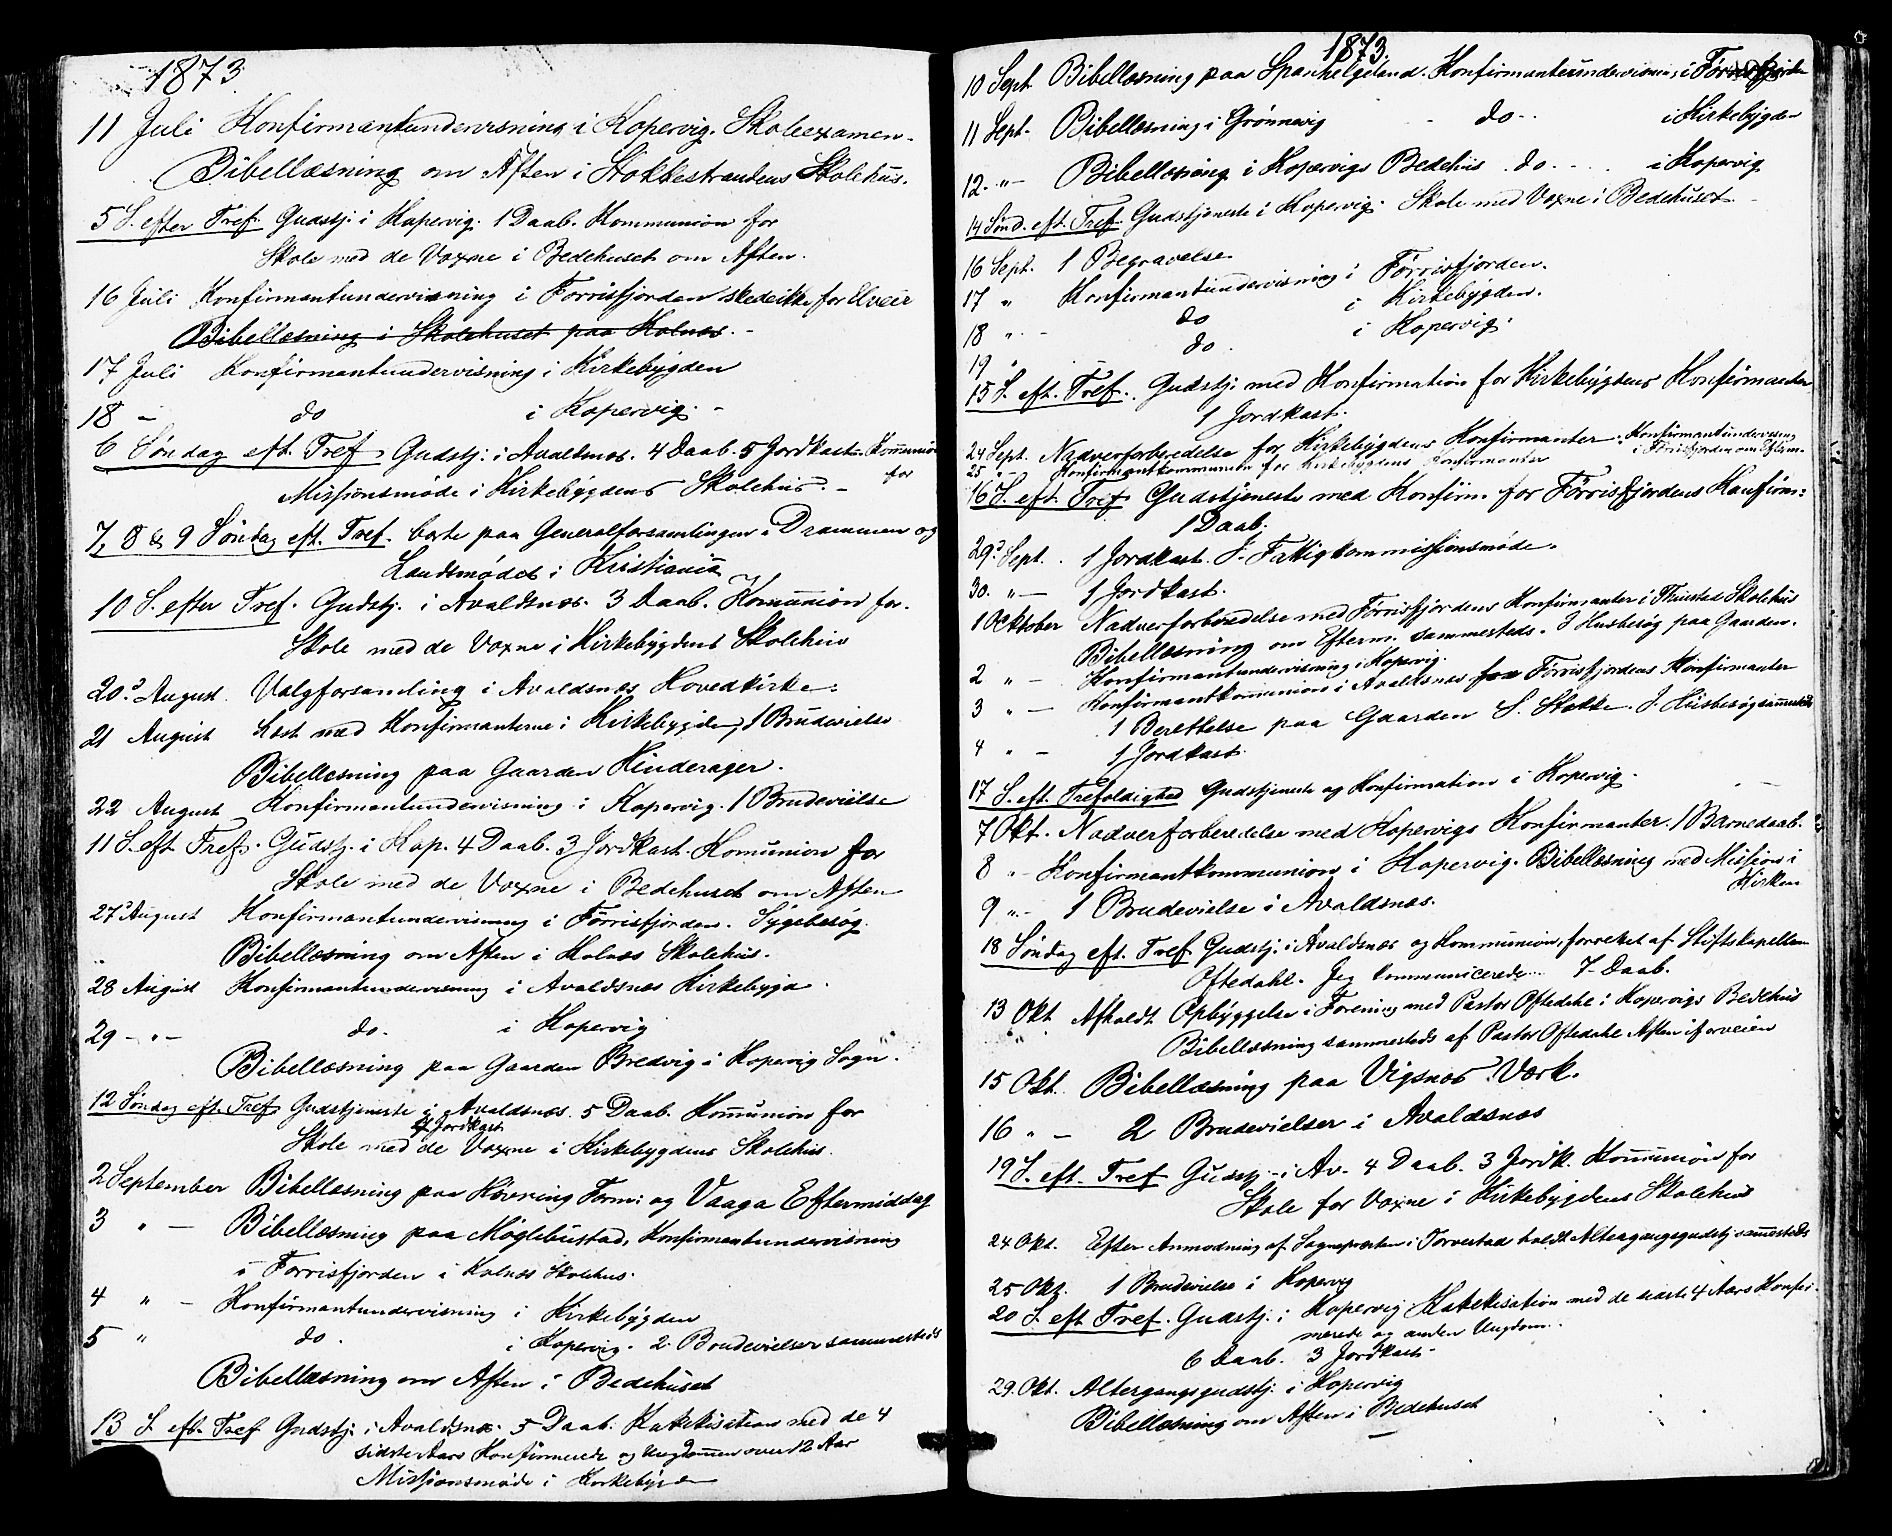 1873.
11 Juli Konfirmantundervisning i Kopervig. Skoleexamen.
Bibellæsning om Aften i Stokkestrandens Skolehus.
5 S. efter Tref. Gudstj. i Kopervig. 1 Daab. Kommunion for
Skole med de Voxne i Bedehuset om Aften.
16 Juli Konfirmantundervisning i Førrisfjorden skede ikke for Uveir
Bibellæsning i Skolehuset paa Kolnæs.
17 Juli Konfirmantundervisning i Kirkebygden
18 – do i Kopervig. -
6 Søndag eft. Tref. Gudstj. i Avaldsnæs. 4 Daab. 5 Jordkast. Kommunion for
Missionsmøde i Kirkebygdens Skolehus. -
7, 8 & 9 Søndag eft. Tref. borte paa Generalforsamlingen i Drammen og
Landsmødet i Kristiania
10 S. efter Tref. Gudstj. i Avaldsnæs. 3 Daab. Komunion for.
Skole med de Voxne i Kirkebygdens Skolehus
20. August. Valgforsamling i Avaldsnæs Hovedkirke.
21 August Læst med Konfirmanterne i Kirkebygden, 1 Brudevielse
Bibellæsning paa Gaarden Hinderager.
22 August Konfirmantundervisning i Kopervig. 1 Brudevielse
11 S. eft Tref. Gudstj. i Kop. 4 Daab. 3 Jordkast. Komunion for
Skole med de Voxne i Bedehuset om Aften
27 August Konfirmantundervisning i Førrisfjorden. Sygebesøg.
" Bibellæsning om Aften i Kolnæs Skolehus.
28 August Konfirmantundervisning i Avaldsnæs Kirkebygd.
29 - " - do. i Kopervig
Bibellæsning paa Gaarden Bredvig i Kopervig Sogn.
12 Søndag eft. Tref. Gudstjeneste i Avaldsnæs. 5 Daab. Komunion for
Jordkast
Skole med de Voxne i Kirkebygdens Skolehus.
2 September Bibellæsning paa Høvring Form: og Vaaga Eftermiddag
3 " — Bibellæsning paa Møglebustad, Konfirmantundervisning
i Førrisfjorden i Kolnæs Skolehus.
4 " - Konfirmantundervisning i Kirkebygden
5 " do. i Kopervig. 2 Brudevielser sammesteds
Bibellæsning om Aften i Bedehuset
13 S. eft. Tref Gudstj. i Avaldsnæs. 5 Daab. Katekisation med de 4
sidste Aars Konfirmerede og Ungdommen over 12 Aar
Missionsmøde i Kirkebygden
1873.
10 Sept. Bibellæsning paa Spanhelgeland. Konfirmantundervisn. i Førrisfjorden
11 Sept. Bibellæsning i Grønnevig - do - i Kirkebygden
12. " - Bibellæsning i Kopervigs Bedehus. do. - . . i Kopervig
14 Sønd. eft. Tref. Gudstjeneste i Kopervig. Skole med Voxne i Bedehuset.
16 Sept. 1 Begravelse
17 " Konfirmantundervisning i Førrisfjorden.
18 " - do i Kirkebygden.
19 " do. i Kopervig.
15 S. eft. Tref. Gudstj. med Konfirmation for Kirkebygdens Konfirmanter
1 Jordkast.
24 Sept. Nadverforberedelse for Kirkebygdens Konfirmanter. Konfirmantundervisning
i Førrisfjorden om Efterm.
25 " - Konfirmantkommunion for Kirkebygdens Konfirmanter
16 S. eft. Tref. Gudstjeneste med Konfirm. for Førrisfjordens Konfirm:
1 Daab.
29 Sept. 1 Jordkast. I Fattigkommissionsmøde.
30. " — 1 Jordkast.
1 Ocktober Nadverforberedelse med Førrisfjordens Konfirmanter i Skolehus
Bibellæsning om Efterm. sammesteds. I Husbesøg paa Gaarden.
2 " - Konfirmantundervisning i Kopervig.
3 " — Konfirmantkommunion i Avaldsnæs for Førrisfjordens Konfirmanter
1 Berettelse paa Gaarden S. Stokke. I Husbesøg sammesteds
4 " - 1 Jordkast.
17 S. eft. Trefoldighed Gudstjeneste og Konfirmation i Kopervig.
7 Okt. Nadverforberedelse med Kopervigs Konfirmanter. 1 Barnedaab.
8 " - Konfirmantkommunion i Kopervig. Bibellæsning med Mission i
Kirken
9 " - 1 Brudevielse i Avaldsnæs.
18 Søndag eft. Tref. Gudstj. i Avaldsnæs og Kommunion, forrettet af Stiftskapellan
Oftedahl. Jeg kommunicerede. 7 Daab.
13 Okt Afholdt Opbyggelse i Forening med Pastor Oftedahl i Kopervigs Bedehus
Bibellæsning sammesteds af Pastor Oftedahl Aften iforveien
15 Okt. Bibellæsning paa Vigsnæs Værk.
16 " - 2 Brudevielser i Avaldsnæs
19 S. eft. Tref Gudstj. i Av. 4 Daab. 3 Jordk. Kommunion for
Skole for Voxne i Kirkebygdens Skolehus
24 Okt. Efter Anmodning af Sognepræsten i Torvestad holdt Altergangsgudstj. sammesteds
25 Okt. 1 Brudevielse i Kopervig
20 S. eft Tref. Gudstj. i Kopervig Katekisation med de sidste 4 Aars Konfir-
merede og anden Ungdom.
6 Daab. 3 Jordkast.
29. Okt. Altergangsgudstj. i Kopervig
Bibellæsning om Aften i Bedehuset